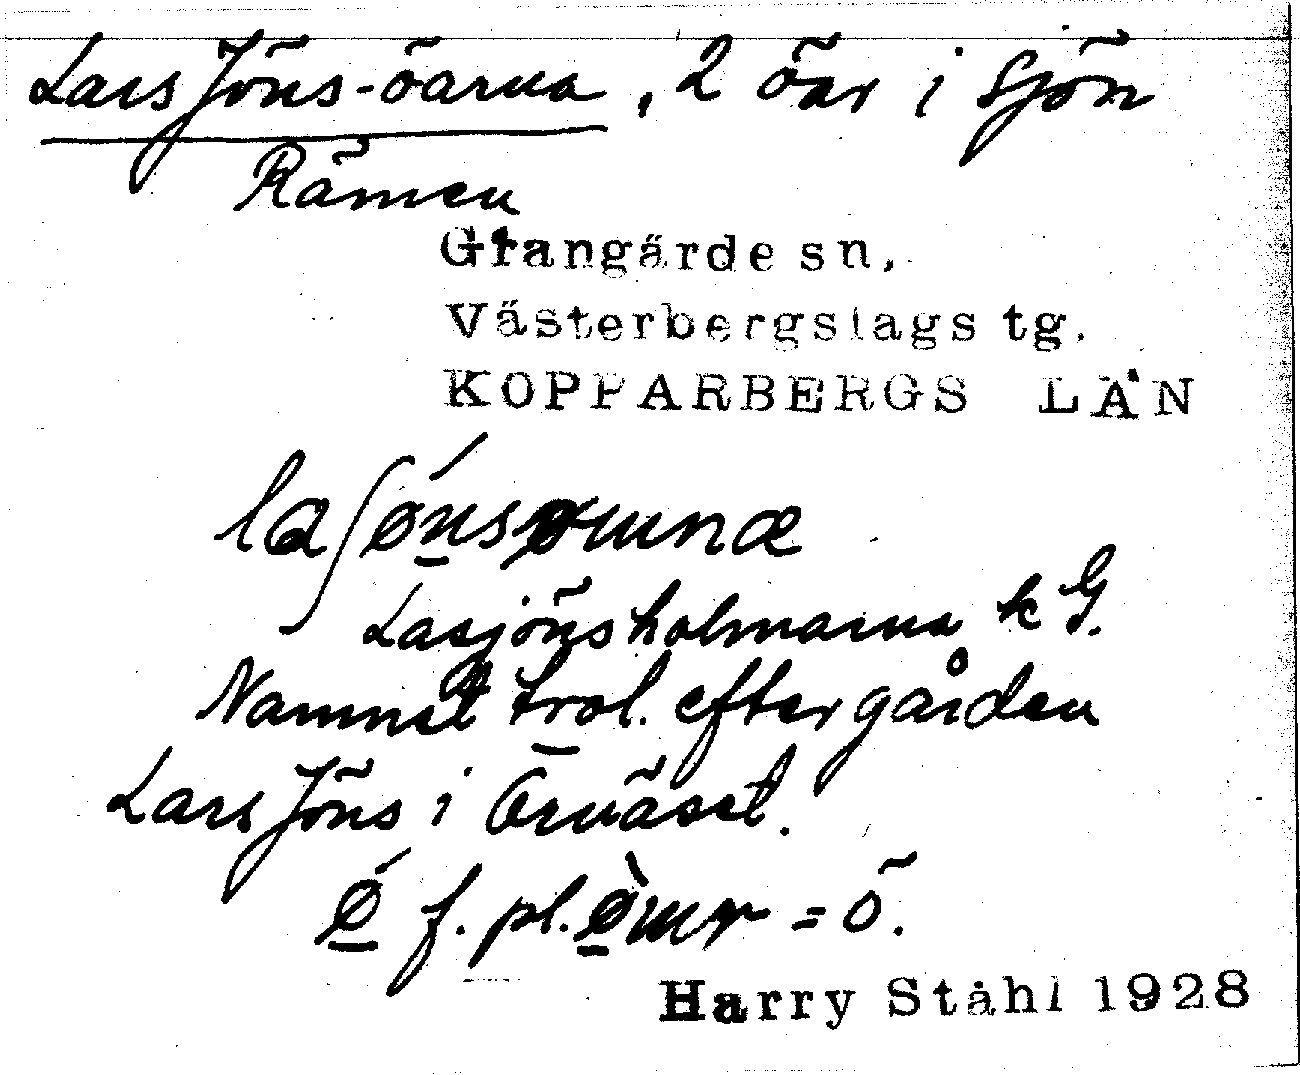 Lars Jöns-öarna, 2 öar i sjön
Råmen
Grangärde sn.
Västerbergslags tg.
KOPPARBERGS LÄN
Lasjönsholmarna k G.
Namnet trol. efter gården
Lars Jöns i Örnäset.
f. pl. = ö.
Harry Ståhl 1928